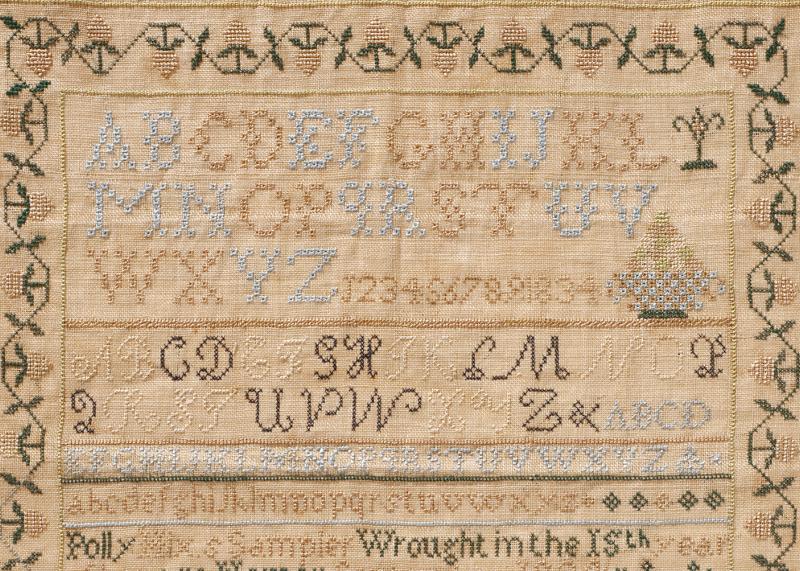 ABCDEFGHIJKL
MNOPQRSTUV
WXYZ 1234567891834
ABCDEFGHIKLMNOP
QRSTUVWXYZ&ABCD
EFGHIJKLMNOPQRSTUVWXYZ&
abcdefghijklmnopqrstuvwxyz
Polly Sampler Wrought in the 15th year